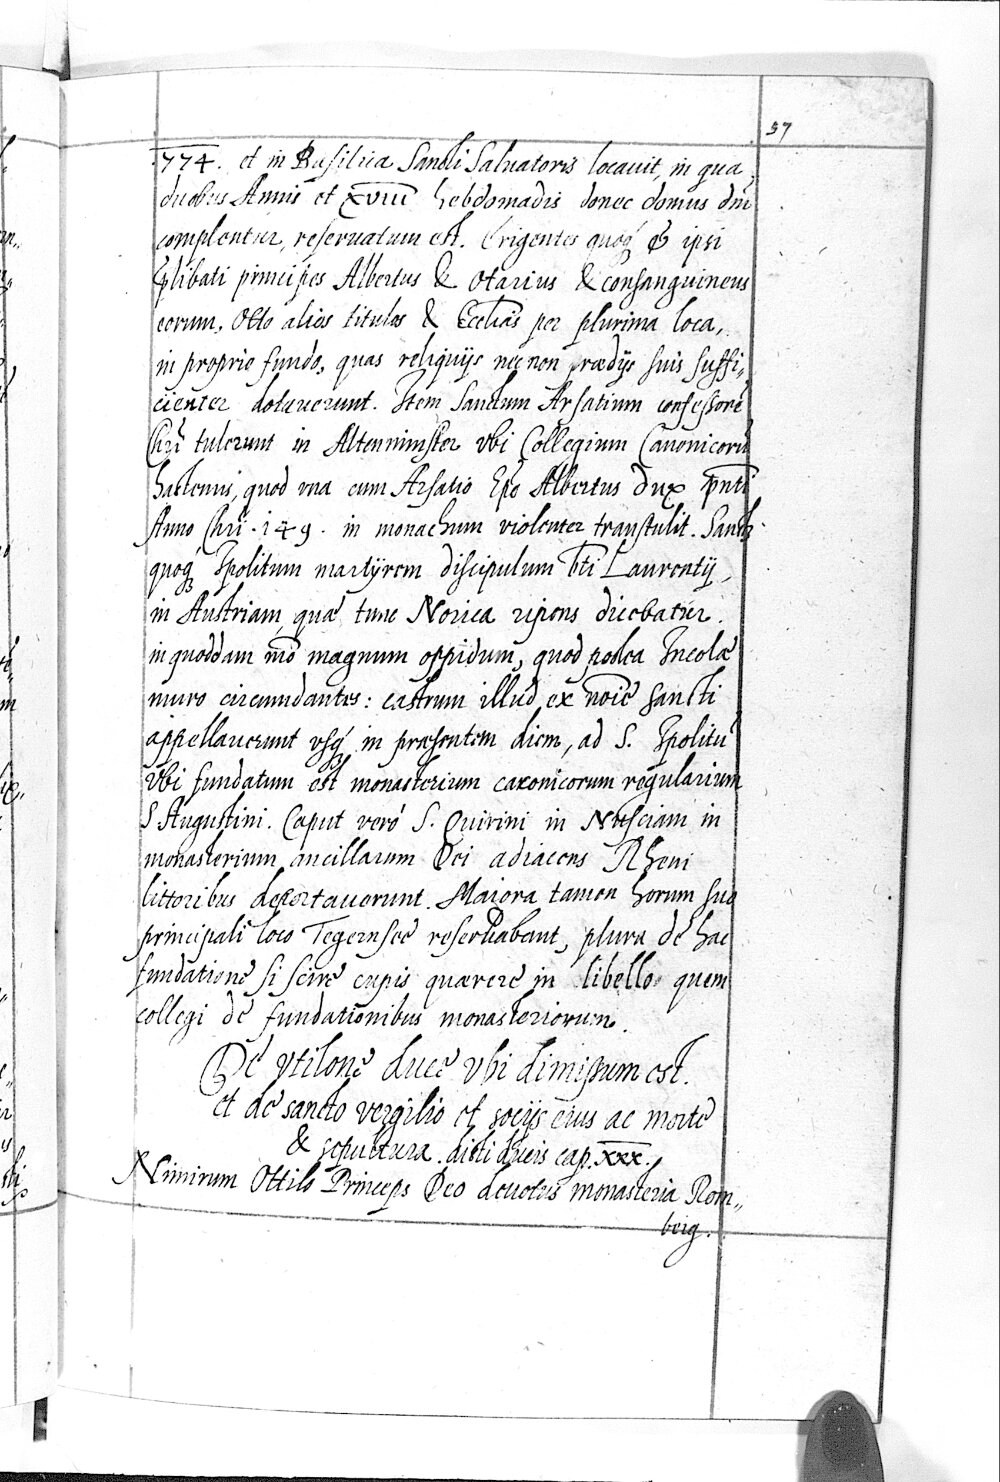 57
774. et in Basilica Sancti Salvatoris locavit, in qua,
duobus Annis et XVIII hebdomadis donec domus dni
complentur, reservatum est. Erigentes quoq & ipsi
plibati principes Albertus & Otarius & consanguineus
eorum, Otto alios titulos & Ecclias per plurima loca,
in proprio fundo, quas reliquijs necnon prædijs suis suffi„
cienter dotaverunt. Item Sanctum Arsatium confessorē
Chri tulerunt in Altenminster vbi Collegium Canonicorū
hactenus, quod vna cum Arsatio Epo Albertus dux pnti
Anno Chri. 149. in monachum violenter transtulit. Sanctū
quoq Ipolitum martyrem discipulum bti Laurentij,
in Austriam, quæ tunc Norica ripens dicebatur.
in quoddam mō magnum oppidum, quod postea Incolæ
muro circumdantes: castrum illud ex noīe sancti
appellaverunt vsq in præsentem diem, ad S. Ipolitū
vbi fundatum est monasterium canonicorum regularium
S Augustini. Caput verò S. Quirini in Nusciam in
monasterium ancillarum Dei adiacens Rheni
littoribus deportaverunt. Maiora tamen horum suo
principali loco Tegernsee reservabant, plura de hac
fundatione si scire cupis quærere in libello quem
collegi de fundationibus monasteriorum.
De vtilone duce vbi dimissum est.
et de sancto vergilio et socijs eius ac morte
& sepultura. dicti ducis cap. XXX.
Nimirum Ottilo Princeps Deo devotus monasteria Rom„
berg.